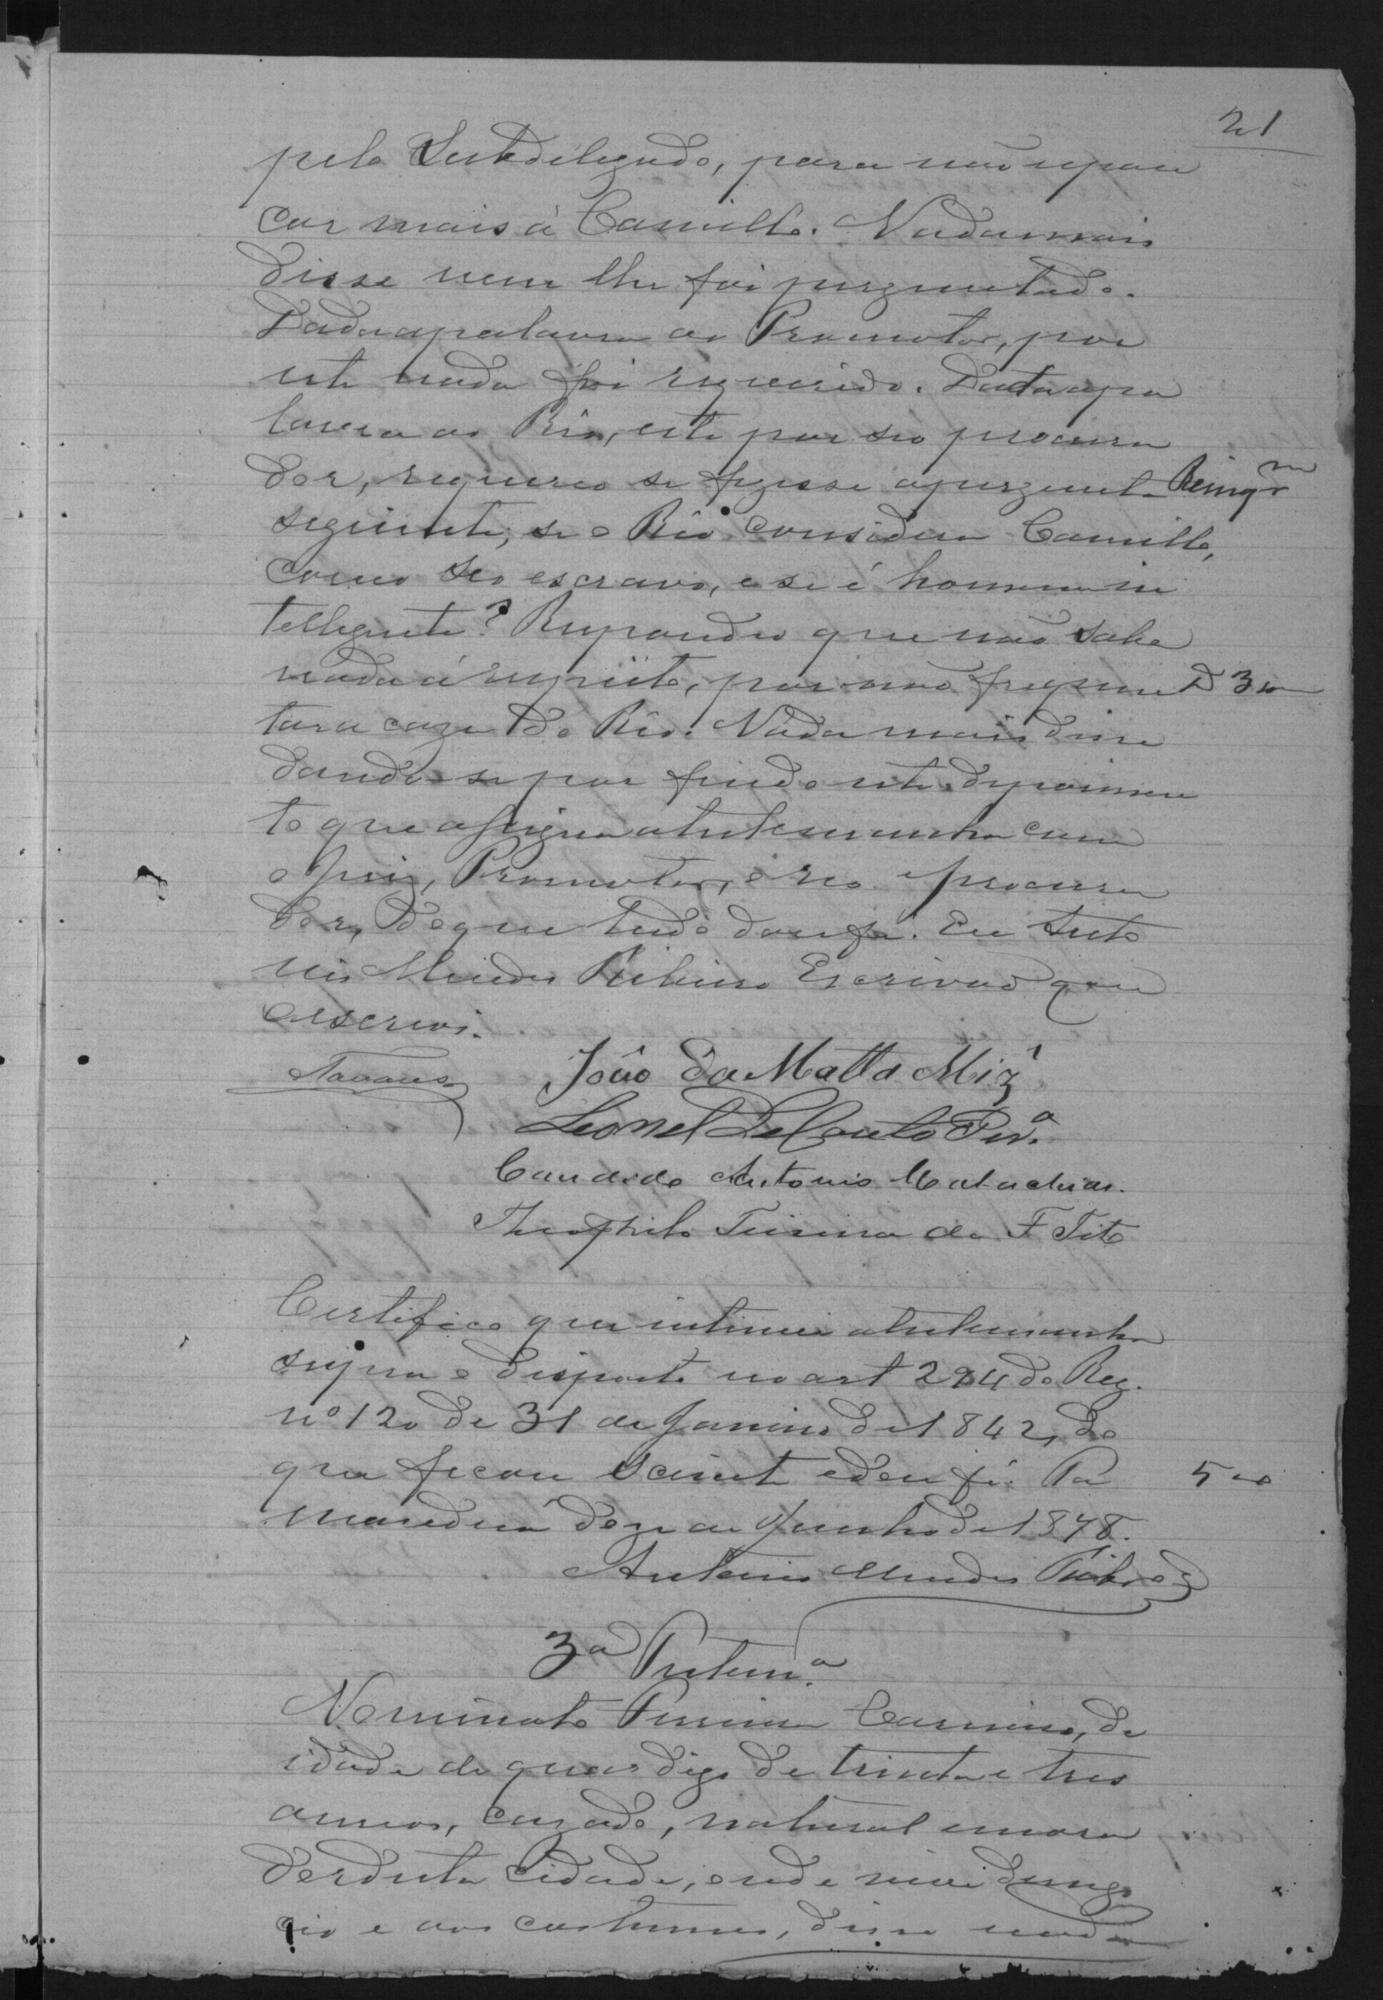 21
pelo Subdelegado, para não espan
car mais á Camillo. Nada mais
disse nem lhe foi perguntado.
Dada a palavra ao Promotor, por
este nada foi requerido. Dada a pa
lavra ao Réo, este por seo procura
dor, requereo se fizesse a pergunta
seguinte, se o Réo considera Camillo,
como seo escravo, e se é homem in
telligente? Respondeo que não sabe
nada á respeito, por não frequen
tar a caza do Réo. Nada mais disse
dando-se por findo este depoimen
to que assigna a testemunha com
o Juiz, Promotor, o reo e procura
dor, do que tudo dou fé. Eu Anto
nio Mendes Ribeiro Escrivão que
escrevi.
Tavares
João da Matta Miz
Leonel de Couto Per.ª
Candido Antonio Malachias.
Theophilo Teixeira de F Tito
Certifico que intimei a testemunha
supra o disposto no art 294 do Reg.
nº 120 de 31 de Janeiro de 1842, do
que ficou sciente e dou fé. Pa
500
dez de Junho de 1878.
Antonio Mendes Ribro
3ª Testem.ª
Pereira
idade de quar digo de trinta e tres
annos, cazado, natural e mora
dor desta Cidade, onde vive de nego
cio e aos costumes, disse nada